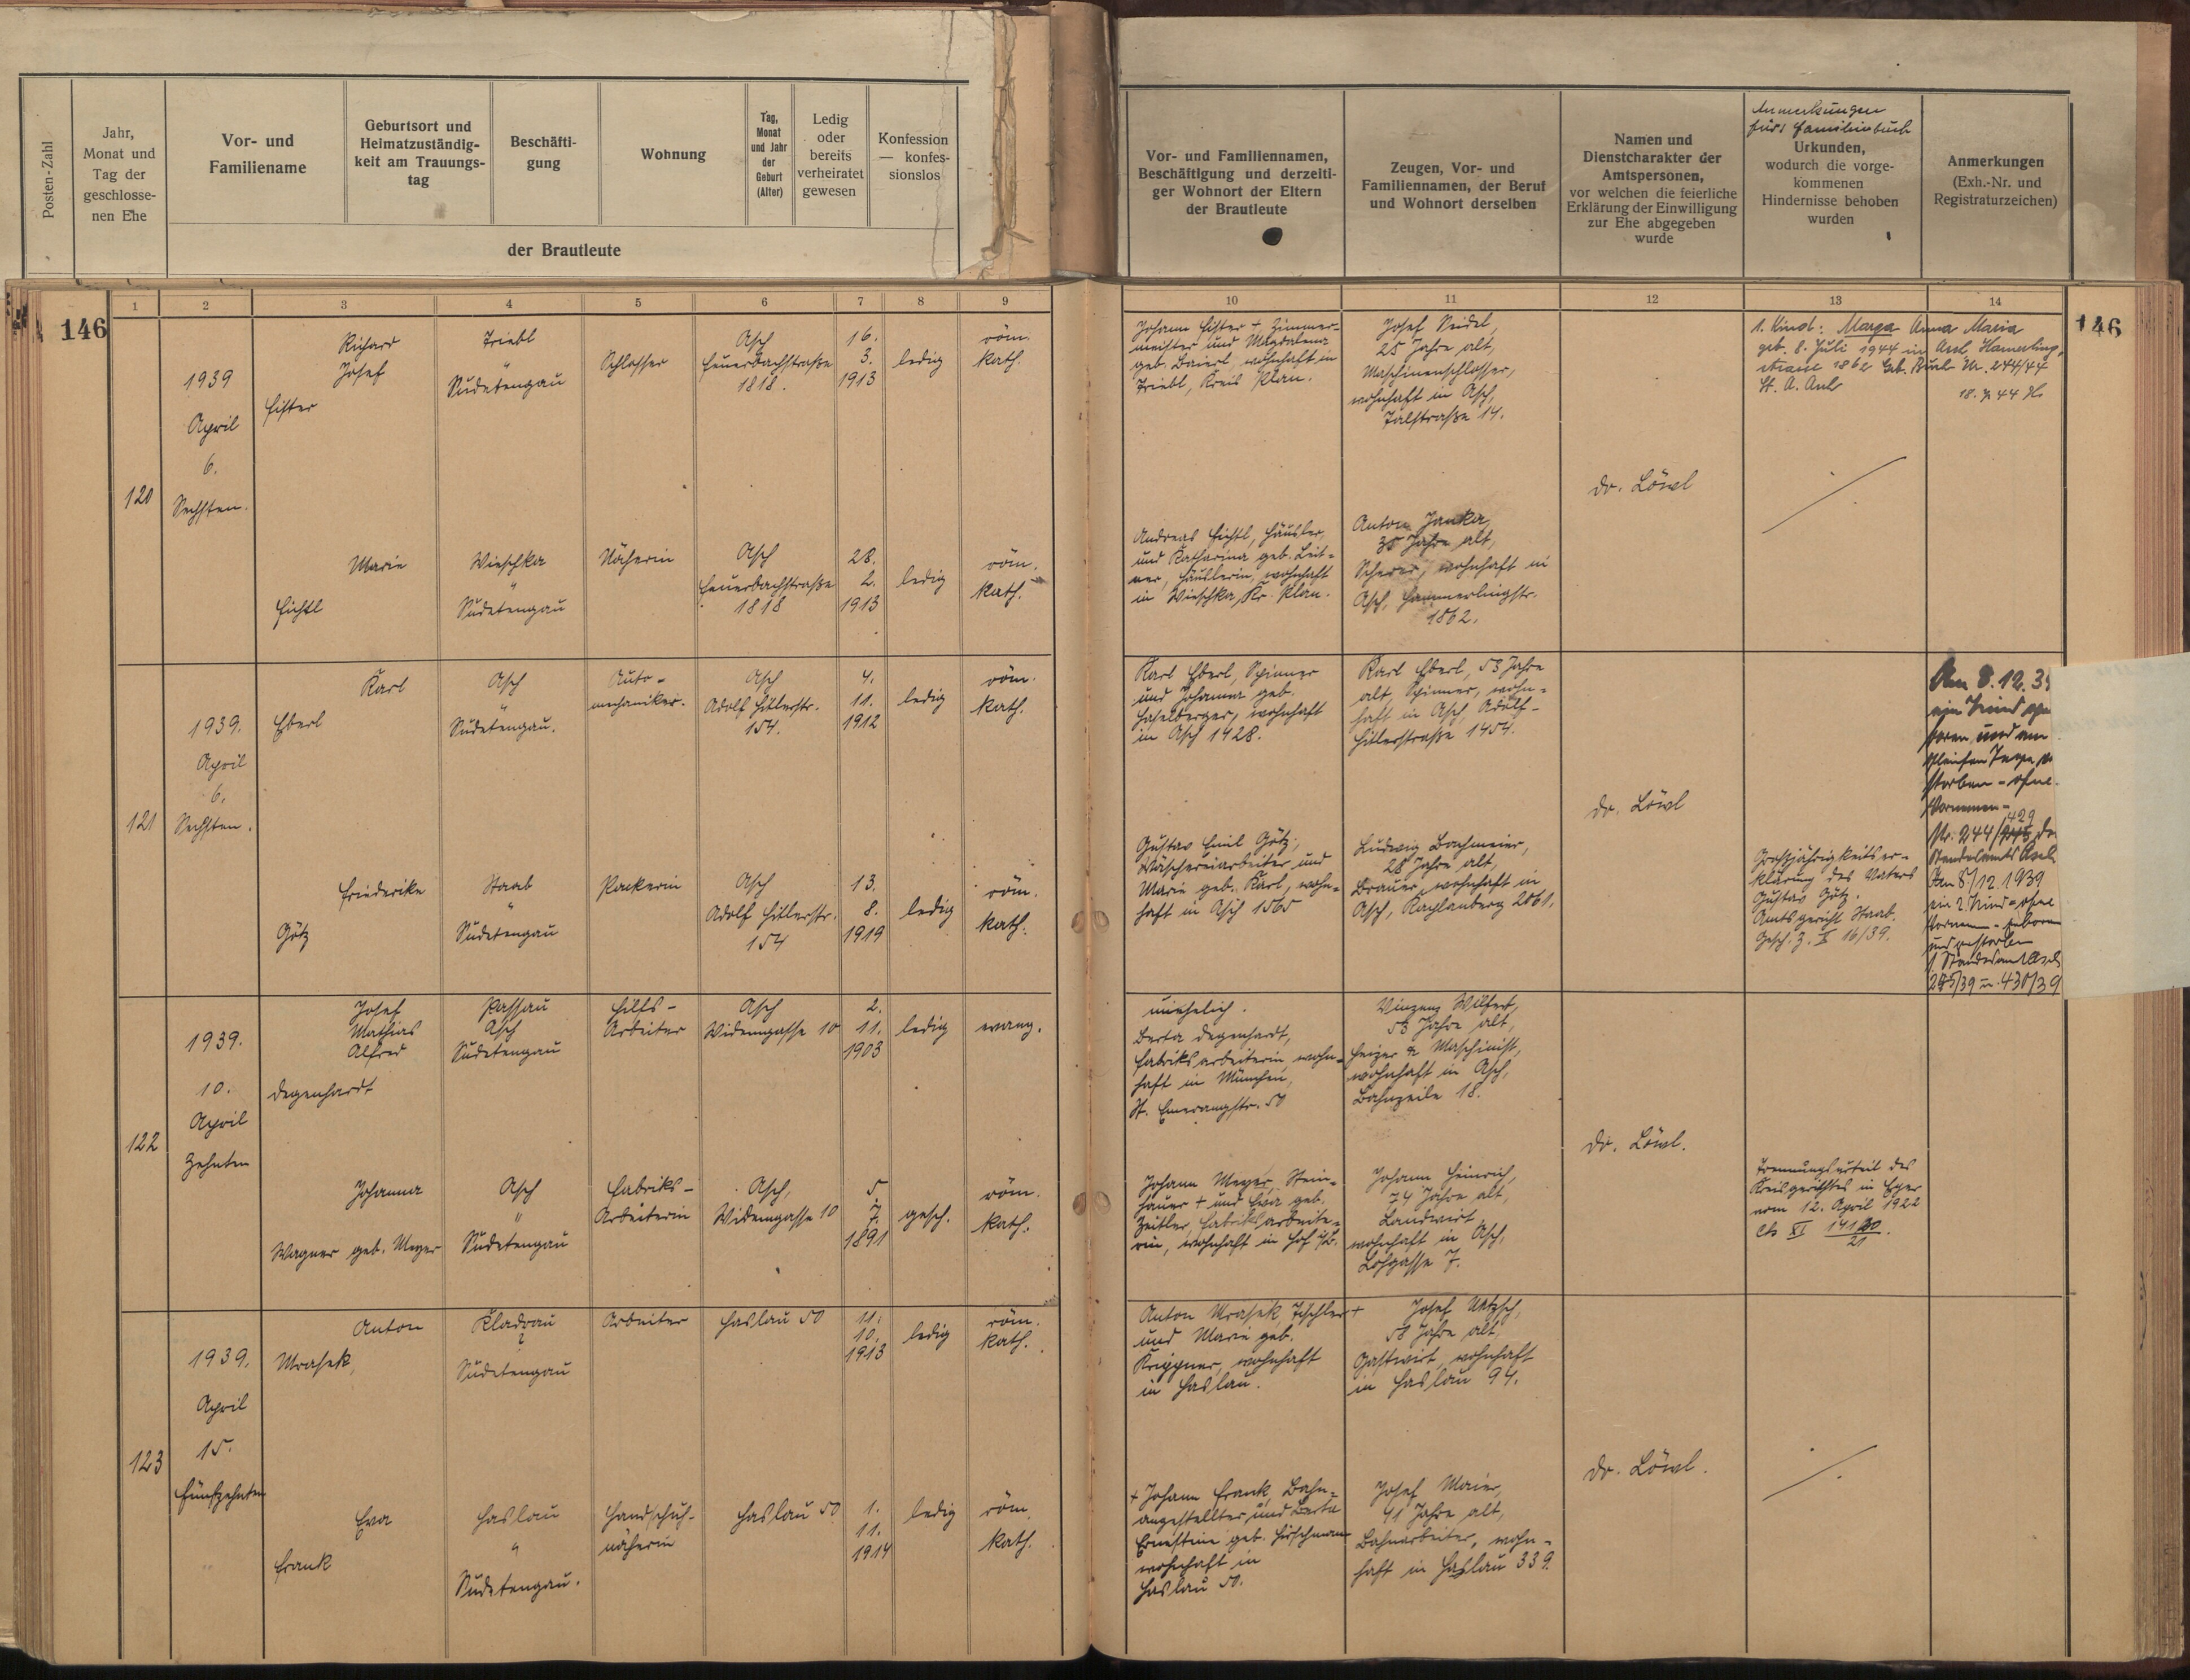 Posten-Zahl
Jahr,
Monat und
Tag der
geschlosse-
nen Ehe
Vor- und
Familiename
Geburtsort und
Heimatzuständig-
keit am Trauungs-
tag
Beschäfti-
gung
Wohnung
Tag,
Monat
und Jahr
der
Geburt
(Alter)
Ledig
oder
bereits
verheiratet
gewesen
Konfession
— konfes-
sionslos
der Brautleute
Vor- und Familiennamen,
Beschäftigung und derzeiti-
ger Wohnort der Eltern
der Brautleute
Zeugen, Vor- und
Familiennamen, der Beruf
und Wohnort derselben
Namen und
Dienstcharakter der
Amtspersonen,
vor welchen die feierliche
Erklärung der Einwilligung
zur Ehe abgegeben
wurde
Anmerkungen
fürs Familienbuch
Urkunden,
wodurch die vorge-
kommenen
Hindernisse behoben
wurden
Anmerkungen
(Exh.-Nr. und
Registraturzeichen)
146
1 2 3 4 5 6 7 8 9
10 11 12 13 14
146
120
1939
April
6.
Sechsten.
Richard
Josef
Fister
Triebl
"
Sudetengau
Schlosser
Asch
Feuerbachstraße
1818.
16.
3.
1913
ledig
röm.
kath.
Johann Fister +, Zimmer-
meister und Magdalena
geb. Baierl, wohnhaft in
Triebl, Kreis Plan.
Josef Seidel,
25 Jahre alt,
Maschinenschlosser,
wohnhaft in Asch,
Talstraße 14.
1. Kind: Marga Anna Maria
geb. 8. Juli 1944 in Asch Hamerling-
strasse 1862 Geb. Buch Nr. 244/44
St. A. Asch
18. 7. 44
Dr. Löwl
Marie
Fichtl
Wieschka
"
Sudetengau
Näherin
Asch
Feuerbachstraße
1818
28.
2.
1913
ledig
röm.
kath.
Andreas Fichtl, Häusler,
und Katharina geb. Leit-
ner, Häuslerin, wohnhaft
in Wieschka, Kr. Plan.
Anton Janka,
35 Jahre alt,
Scherer, wohnhaft in
Asch, Hammerlingstr.
1862.
121
1939.
April
6.
Sechsten.
Karl
Eberl
Asch
"
Sudetengau.
Auto-
mechaniker.
Asch
Adolf Hitlerstr.
154.
4.
11.
1912
ledig
röm.
kath.
Karl Eberl, Spinner
und Johanna geb.
Haselberger, wohnhaft
in Asch 1428.
Karl Eberl, 53 Jahre
alt, Spinner, wohn-
haft in Asch, Adolf-
Hitlerstraße 1454.
Dr. Löwl
Am 8.12.39
ein Kind
und am
gleichen Tage
storben - ohne
Vornamen -
429
Nr. 244/
Standesamts Asch
Am 8/12.1939
ein 2. Kind - ohne
Vornamen - geboren
und gestorben
Standesamt Asch
245/39 u. 430/39
Friederike
Götz
Staab
"
Sudetengau
Packerin
Asch
Adolf Hitlerstr.
154
13.
8.
1919
ledig
röm.
kath.
Gustav Emil Götz,
Wäschereiarbeiter und
Marie geb. Karl, wohn-
haft in Asch 1565
Ludwig Bachmeier,
28 Jahre alt,
Brauer, wohnhaft in
Asch, Kaplanberg 2061.
Großjährigkeitser-
klärung des Vaters
Gustav Götz.
Amtsgericht Staab.
Gesch. Z. X 16/39.
122
1939.
10.
April
Zehnten
Josef
Mathias
Alfred
Degenhardt
Passau
Asch
Sudetengau
Hilfs-
Arbeiter
Asch
Widemgasse 10
2.
11.
1903
ledig
evang.
unehelich.
Berta Degenhardt,
Fabriksarbeiterin, wohn-
haft in München,
St. Emeramstr. 50
Vinzenz Wilfert,
53 Jahre alt,
Heizer u Maschinist,
wohnhaft in Asch,
Bahnzeile 18.
Dr. Löwl.
Johanna
Wagner geb. Meyer
Asch
"
Sudetengau
Fabriks-
Arbeiterin
Asch,
Widemgasse 10
5
7.
1891
gesch.
röm.
kath.
Johann Meyer, Stein-
hauer + und Eva geb.
Zeitler, Fabriksarbeite-
rin, wohnhaft in Hof i/B.
Johann Heinrich,
74 Jahre alt,
Landwirt,
wohnhaft in Asch,
Lohgasse 7.
Trennungsurteil des
Kreisgerichtes in Eger
vom 12. April 1922
Ck XI 141 20
21
123
1939.
April
15.
Fünfzehnten
Anton
Mrasek,
Kladrau
?
Sudetengau
Arbeiter
Haslau 50
11.
10.
1913
ledig
röm.
kath.
Anton Mrasek, Tischler +
und Marie geb.
Krippner, wohnhaft
in Haslau.
Josef Uetzsch,
58 Jahre alt,
Gastwirt, wohnhaft
in Haslau 94.
Dr. Löwl.
Eva
Frank
Haslau
"
Sudetengau.
Handschuh-
näherin
Haslau 50
1.
11.
1914
ledig
röm.
kath.
+ Johann Frank, Bahn-
angestellter und Berta
Ernestine geb. Hirschmann
wohnhaft in
Haslau 50.
Josef Maier,
41 Jahre alt,
Bahnarbeiter, wohn-
haft in Haslau 339.